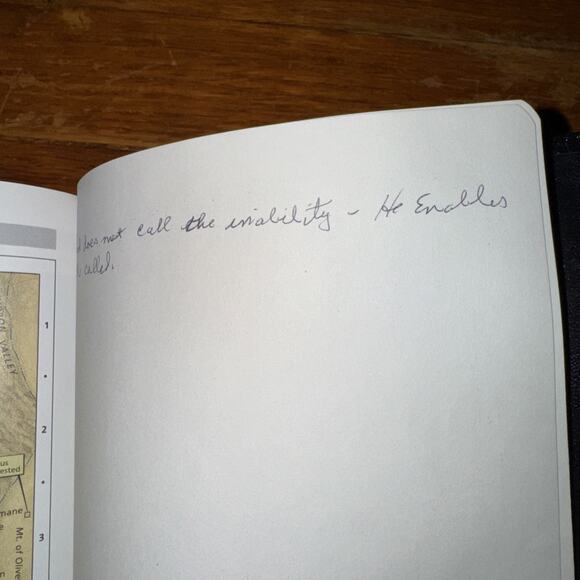 does not call the inability - He Enables
called.
1
2
3
VALLEY
us
ested
mane
e
Mt. of Olive
n